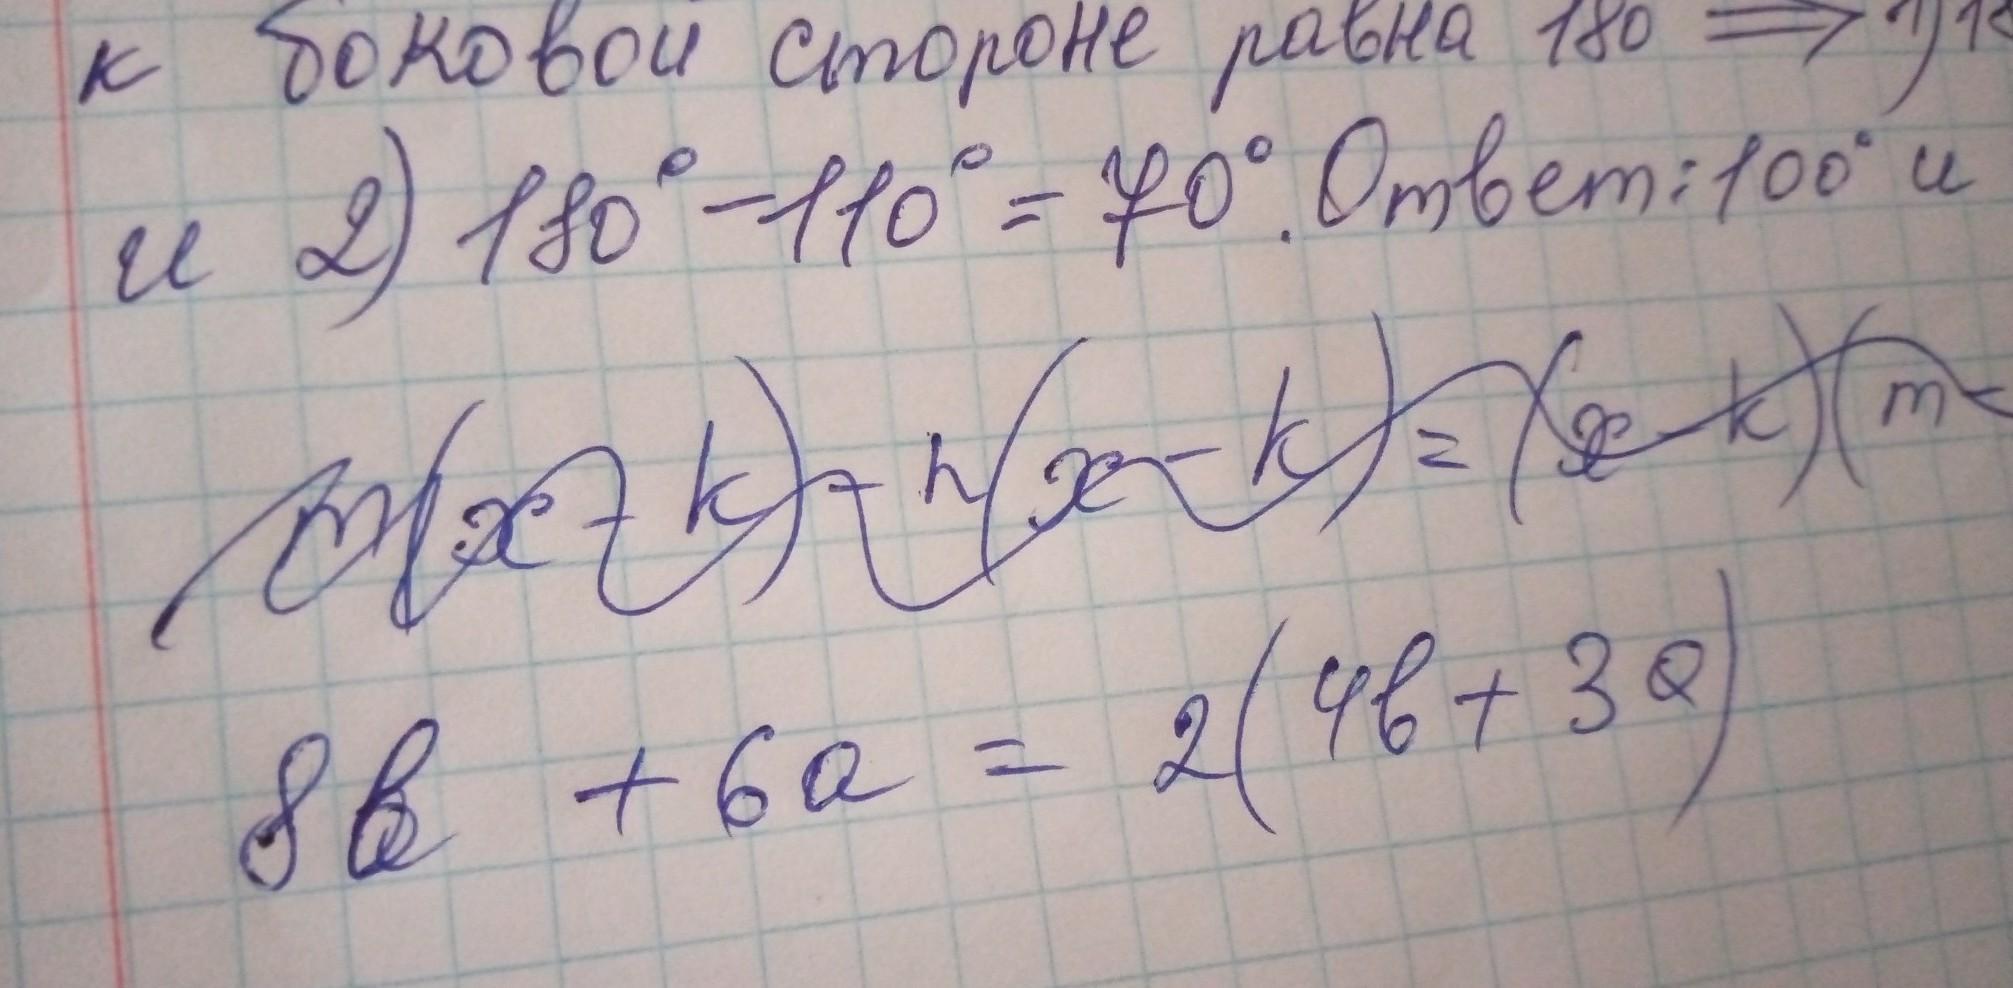 к боковой стороне равна 180 ⟹ 1)18
и 2) 180° - 110° = 70°. Ответ: 100° и
m(x - k) - n(x - k) = (x - k)(m -
8b + 6a = 2(4b + 3a)